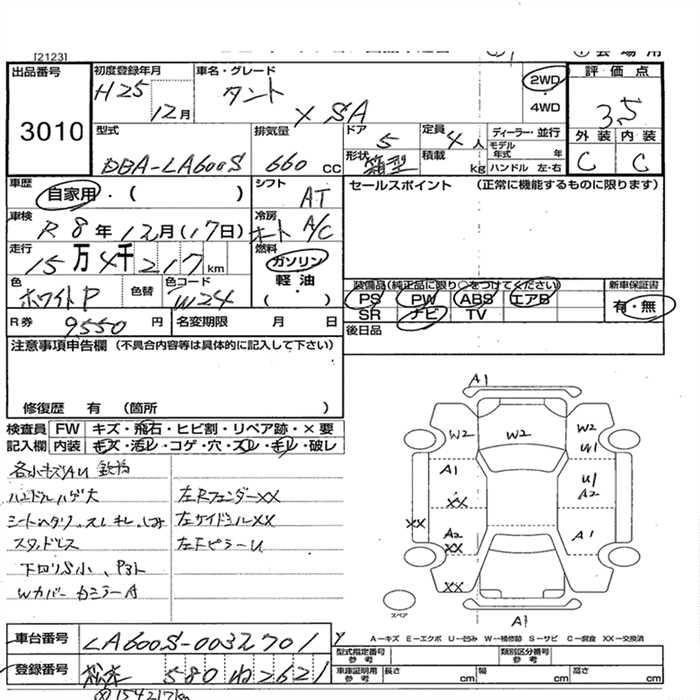 [2123]
出品番号 初度登録年月 車名・グレード 2WD 評価点
H25 12月 タント X SA ・4WD 3.5
3010 外装 内装
型式 排気量 ドア 5 定員 4人 ディーラー・並行 C C
DBA-LA600S 660 cc 形状 箱型 積載 kg モデル年式 年
ハンドル 左・右
車歴 自家用・( ) シフト AT セールスポイント (正常に機能するものに限ります)
車検 R8年12月(17日) 冷房 オート A/C
走行 15万4千217km 燃料 ガソリン
軽油・( )
色 ホワイトP 色替 色コード W24 装備品(純正品に限り○をつけてください) 新車保証書
PS PW ABS エアB 有・無
R券 9550円 名変期限 月 日 SR ナビ TV
後日品
注意事項申告欄 (不具合内容等は具体的に記入して下さい)
修復歴 有 (箇所 )
検査員 FW キズ・飛石・ヒビ割・リペア跡・×要
記入欄 内装 キズ・汚レ・コゲ・穴・スレ・キレ・破レ
各小キズAU
ハンドルハゲ大 左RフェンダーXX
シートヘタリ、スレ、キレ、 左サイドシルXX
スタッドレス 左FピラーU
下回りS小、
Wカバー カミラーA
A1
W2 W2 W2
U1
A1 U1
A2
XX
XX
A2 A1
XX
XX
スペア
A1
A－キズ E－エクボ U－凹み W－補修跡 S－サビ C－腐食 XX－交換済
車台番号 LA600S-0032701
型式指定番号 参考 類別区分番号 参考
登録番号 松本 580 わ 2621
車庫証明用 参考 長さ cm 幅 cm 高さ cm
154217km